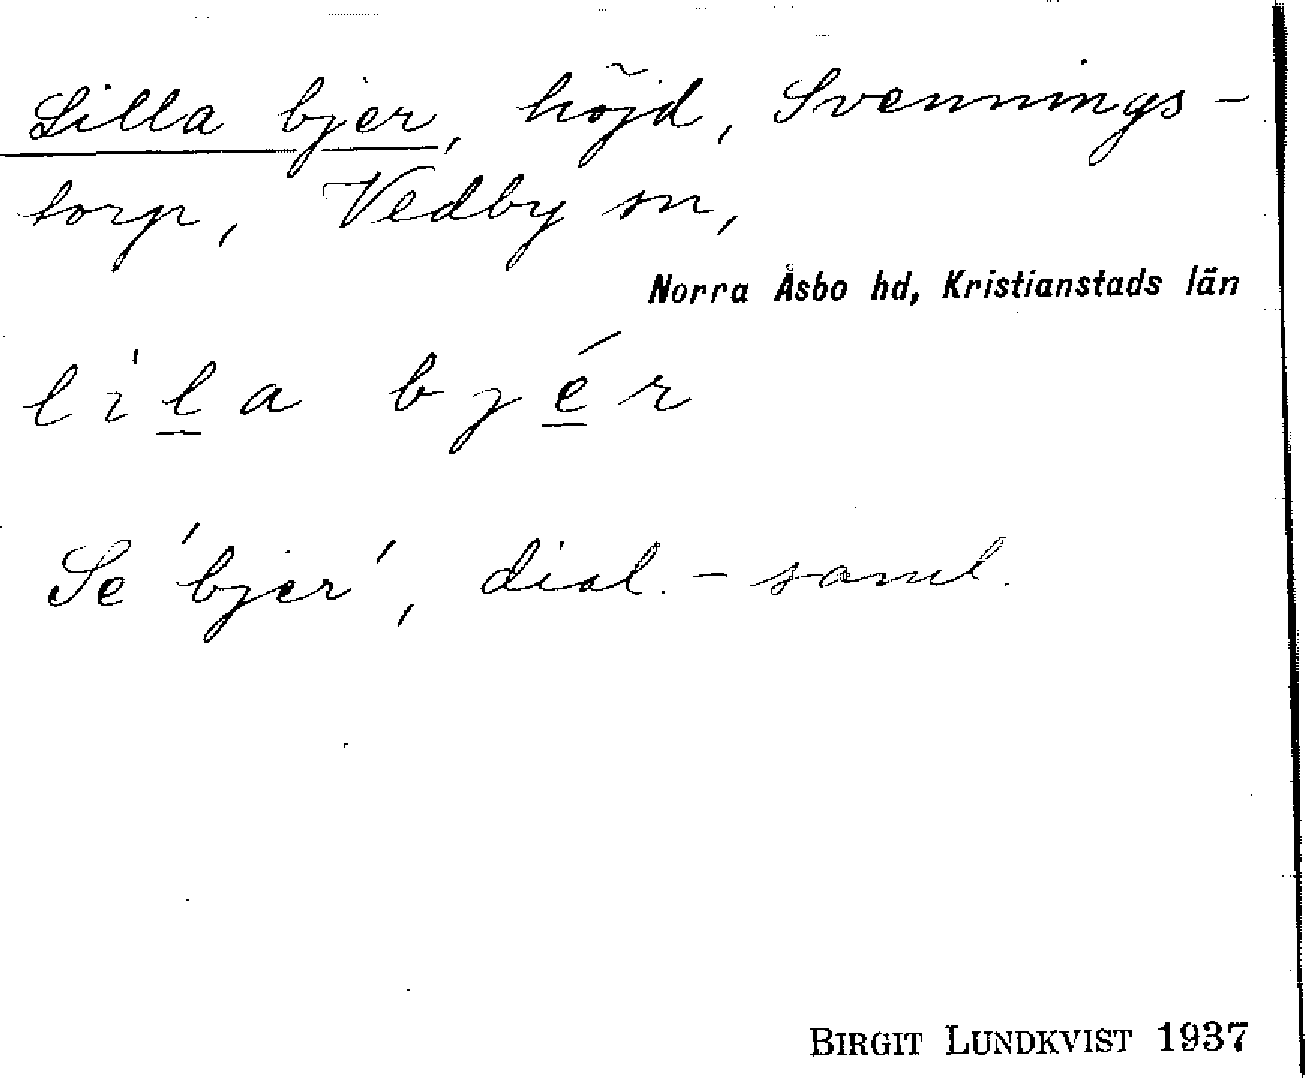 Lilla bjer, höjd, Svennings-
torp, Vedby sn,
Norra Åsbo hd, Kristianstads län
lila bjér
Se 'bjer', dial.-saml.
BIRGIT LUNDKVIST 1937